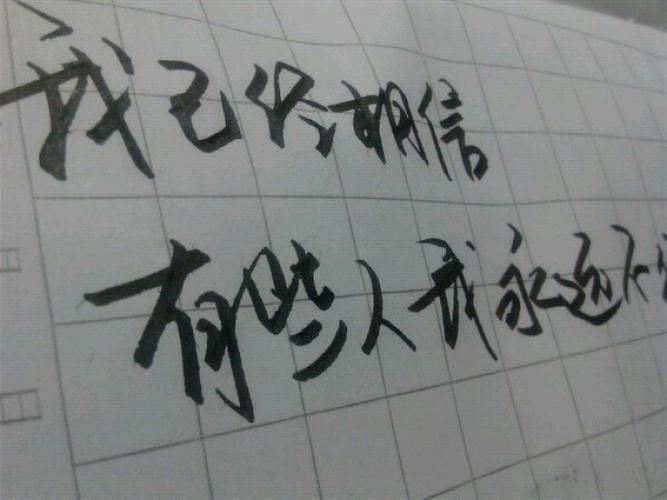 我已经相信
有些人我永远不